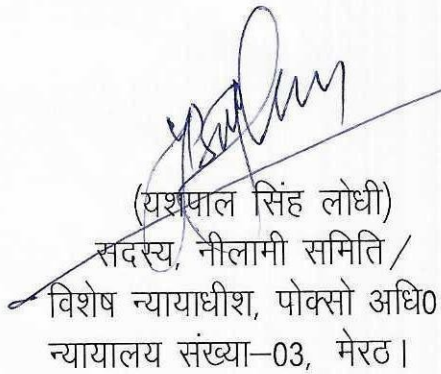 (यशपाल सिंह लोधी)
सदस्य, नीलामी समिति /
विशेष न्यायाधीश, पोक्सो अधि0
न्यायालय संख्या–03, मेरठ।